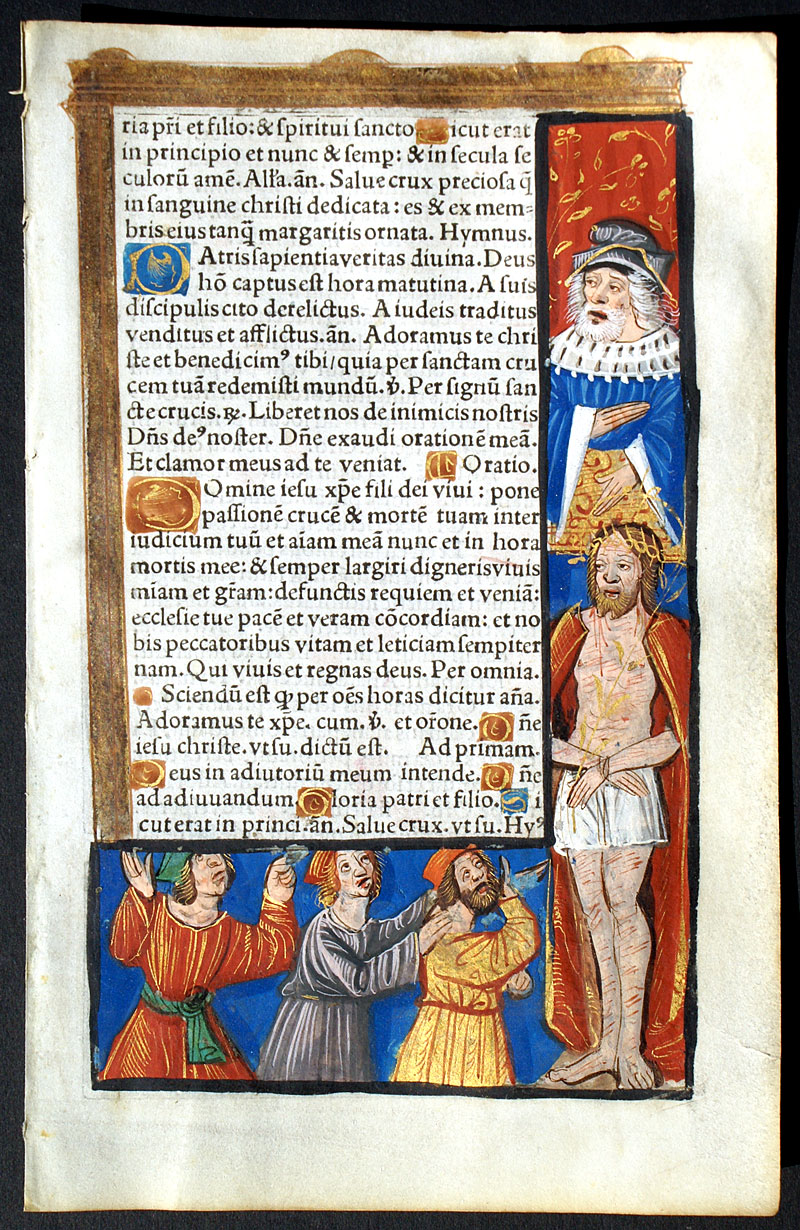 ria pr̄i et filio: & spiritui sancto Sicut erat
in principio et nunc & semp: & in secula se
culorū amē. Alľa. ān. Salue crux preciosa q̄
in sanguine christi dedicata: es & ex mem=
bris eius tanq̄ margaritis ornata. Hymnus.
PAtris sapientia veritas diuina. Deus
hō captus est hora matutina. A suis
discipulis cito derelictus. A iudeis traditus
venditus et afflictus. ān. Adoramus te chri
ste et benedicimꝰ tibi/ quia per sanctam cru
cem tuā redemisti mundū. ℣. Per signū san
cte crucis. ℟. Liberet nos de inimicis nostris
Dñs deꝰ noster. Dñe exaudi orationē meā.
Et clamor meus ad te veniat. Oratio.
DOmine iesu xp̄e fili dei viui: pone
passionē crucē & mortē tuam inter
iudicium tuū et aīam meā nunc et in hora
mortis mee: & semper largiri digneris viuis
mīam et gr̄am: defunctis requiem et veniā:
ecclesie tue pacē et veram cōcordiam: et no
bis peccatoribus vitam et leticiam sempiter
nam. Qui viuis et regnas deus. Per omnia.
Sciendū est ꝙ per oēs horas dicitur aña.
Adoramus te xp̄e. cum. ℣. et or̄one. Dñe
iesu christe. vt su. dictū est. Ad primam.
Deus in adiutoriū meum intende. Dñe
ad adiuuandum. Gloria patri et filio. Si
cut erat in princi. ān. Salue crux. vt su. Hyꝰ